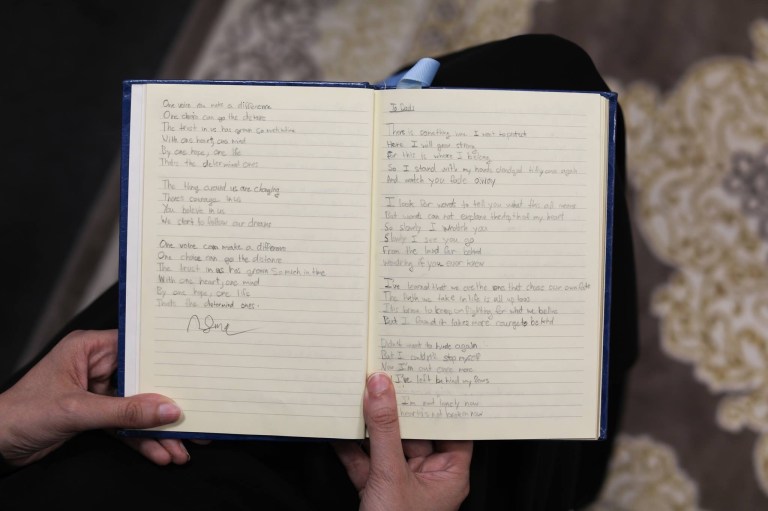 One voice can make a difference
One choice can go the distance
The trust in us has grown so much in time
With one heart, one mind
By one hope, one life
Thats the determined ones
The thing around us are changing
Theres courage in us
You believe in us
We start to follow our dreams
One voice can make a difference
One choice can go the distance
The trust in us has grown so much in time
With one heart, one mind
By one hope, one life
Thats the determind ones.
To God:
There is something here I want to protect
Here I will grow strong
For this is where I belong
So I stand with my hands clenched tilly once again
And watch you fade away
I look for words to tell you what this all mean
But words can not explain the of my heart
So slowly I watch you
Slowly I see you go
From the land far behind
Wondring if you ever knew
I've learned that we are the ones that chose our own fate
The path we take in life is all up to us
It's been to long on fighting for what we belive
But I found it takes more courage to be kind
Didn't want to hurt again
But I couldn't stop myself
Now I'm out once more
I've left behind my fears
I'm not lonely now
heart is not broken now